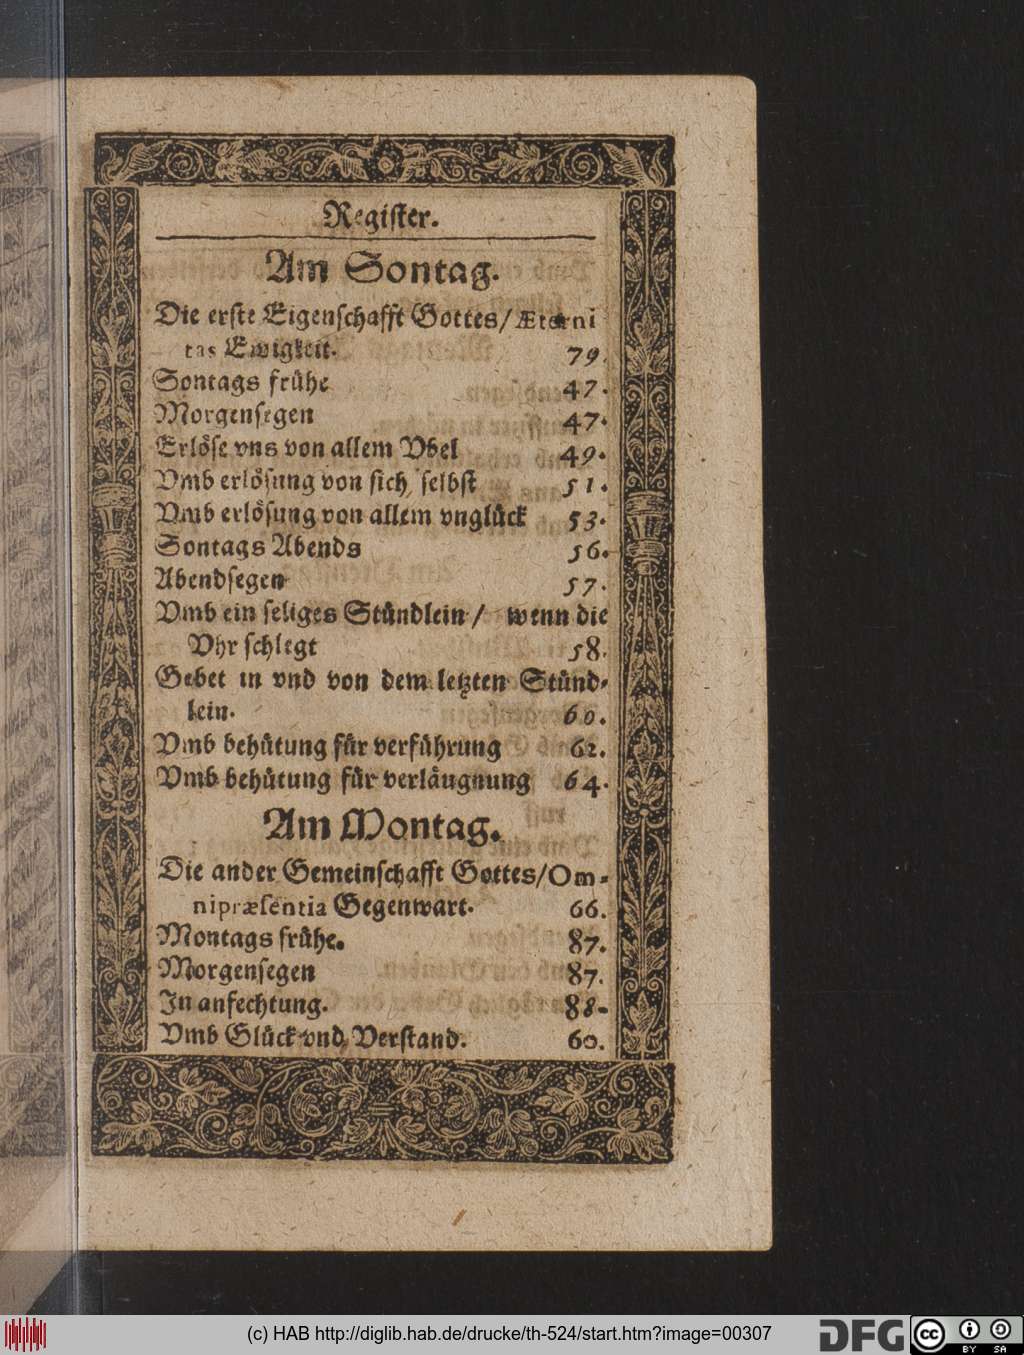 Register.
Am Sontag.
Die erste Eigenschafft Gottes/Æterni
tas Ewigkeit. 79.
Sontags frühe 47.
Morgensegen 47.
Erlöse vns von allem Vbel 49.
Vmb erlösung von sich selbst 51.
Vmb erlösung von allem vnglück 53.
Sontags Abends 56.
Abendsegen 57.
Vmb ein seliges Stündlein / wenn die
Vhr schlegt 58.
Gebet in vnd von dem letzten Stünd-
lein. 60.
Vmb behütung für verführung 62.
Vmb behütung für verläugnung 64.
Am Montag.
Die ander Gemeinschafft Gottes/Om-
nipræsentia Gegenwart. 66.
Montags frühe. 87.
Morgensegen 87.
In anfechtung. 88.
Vmb Glück vnd Verstand. 60.
(c) HAB http://diglib.hab.de/drucke/th-524/start.htm?image=00307
DFG cc BY SA